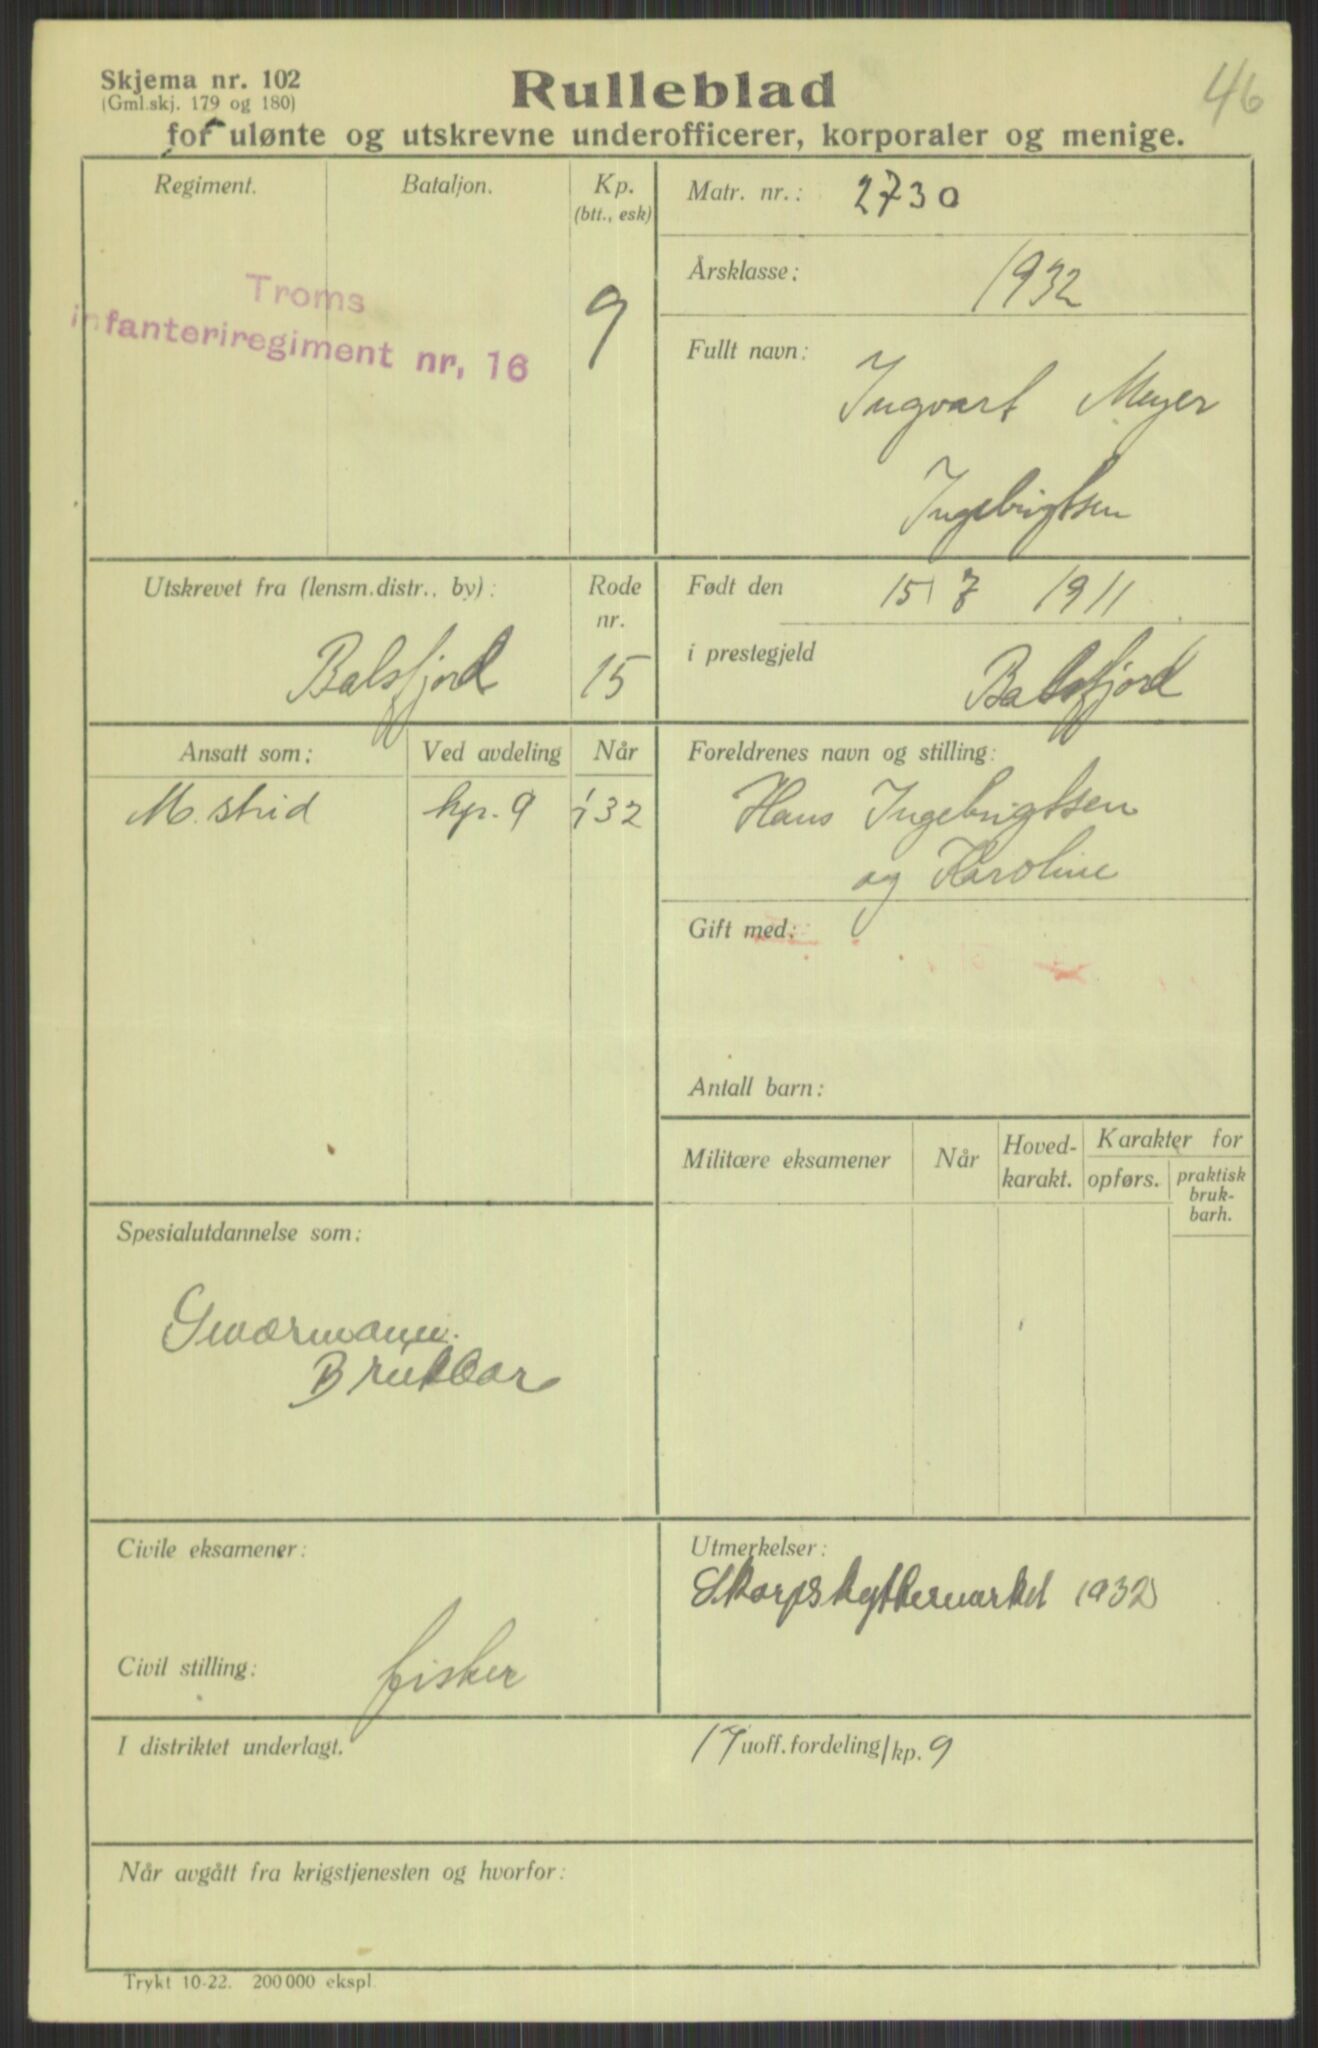 Skjema nr. 102
(Gml.skj. 179 og 180)
Rulleblad
46
for ulønte og utskrevne underofficerer, korporaler og menige.
Regiment.
Bataljon.
Kp.
(btt., esk)
Troms
infanteriregiment nr, 16
9
Matr. nr.: 2730
Årsklasse: 1932
Fullt navn: Ingvart Meyer
Ingebrigtsen
Utskrevet fra (lensm.distr., by):
Balsfjord
Rode
nr.
15
Født den 15/7 1911
i prestegjeld Balsfjord
Ansatt som:
Ved avdeling
Når
M. strid
kp. 9
32
Foreldrenes navn og stilling:
Hans Ingebrigtsen
og Karoline
Gift med:
Antall barn:
Militære eksamener
Når
Hoved-
karakt.
Karakter for
opførs.
praktisk
bruk-
barh.
Spesialutdannelse som:
Geværmann.
Brukbar
Civile eksamener:
Civil stilling: fisker
Utmerkelser:
Skarpskyttermerket 1932
I distriktet underlagt.
17 uoff. fordeling/kp. 9
Når avgått fra krigstjenesten og hvorfor:
Trykt 10-22. 200 000 ekspl.